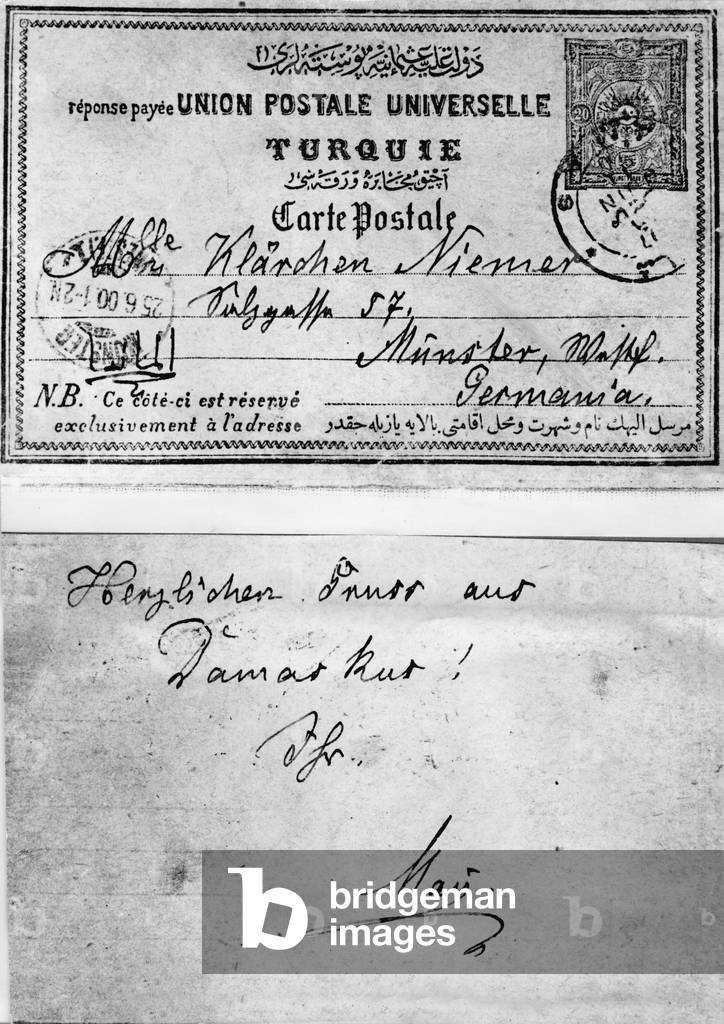 دولت علیه عثمانیه پوسته لری
réponse payée UNION POSTALE UNIVERSELLE
TURQUIE
آچیق مخابره ورقه سی
Carte Postale
20
Mlle Klärchen Niemer
57.
25.6.00.1-2N
Münster, Westf.
Germania.
N.B. Ce côté-ci est réservé
exclusivement à l'adresse
مرسل الیهك نام و شهرت و محل اقامتی بالایه یازیله جقدر
Herzlichen Gruss aus
Damaskus!
Ihr.
May.
bridgeman
images